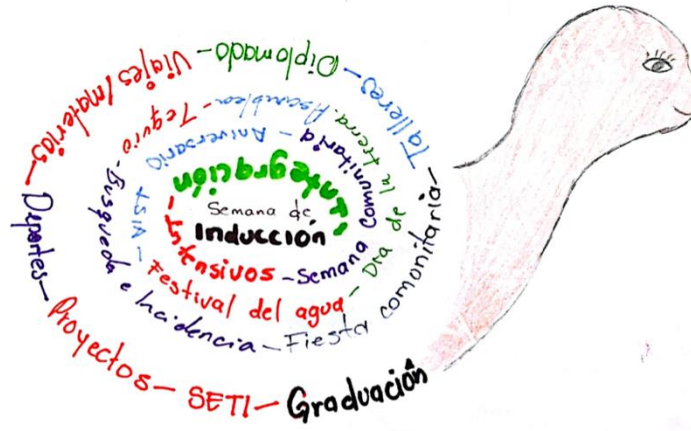 Semana de
Inducción
Integración -
Intensivos -
Semana Comunitaria -
Aniversario
Festival del agua -
Día de la tierra.
Asamblea -
Tequio -
Búsqueda e Incidencia -
Fiesta comunitaria -
Talleres -
Diplomado -
Viajes/materias -
Deportes -
Proyectos -
SETI -
Graduación